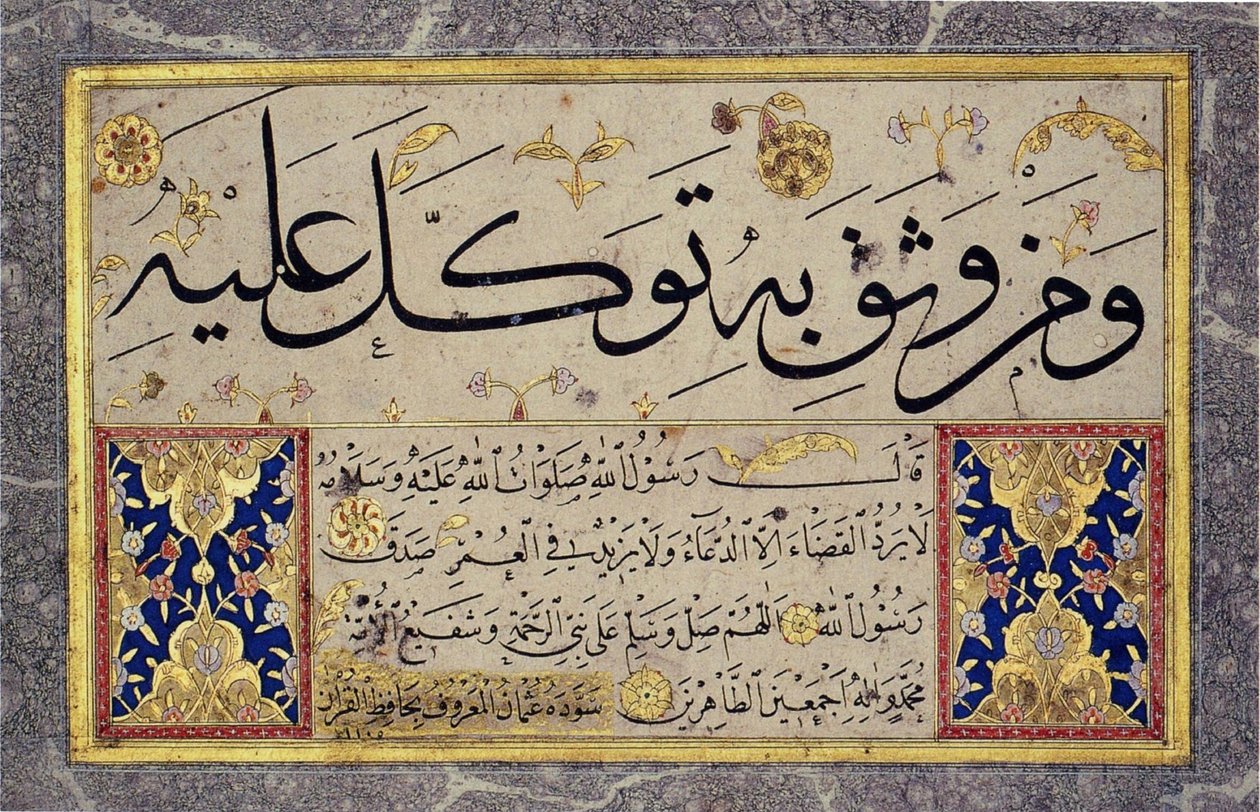 وَمَنْ وَثِقَ بِهِ تَوَكَّلَ عَلَيْهِ
قَالَ رَسُوْلُ اللّٰهِ صَلَوَاتُ اللّٰهِ عَلَيْهِ وَسَلَامُهُ
لَا يَرُدُّ الْقَضَاءَ اِلَّا الدُّعَاءُ وَلَا يَزِيْدُ فِي الْعُمْرِ صَدَقَ
رَسُوْلُ اللّٰهِ اَللّٰهُمَّ صَلِّ وَسَلِّمْ عَلٰى نَبِيِّ الرَّحْمَةِ وَشَفِيْعِ الْاُمَّةِ
مُحَمَّدٍ وَاٰلِهِ اَجْمَعِيْنَ الطَّاهِرِيْنَ سَوَّدَهُ عُثْمَانُ الْمَعْرُوفُ بِحَافِظِ الْقُرْاٰنِ